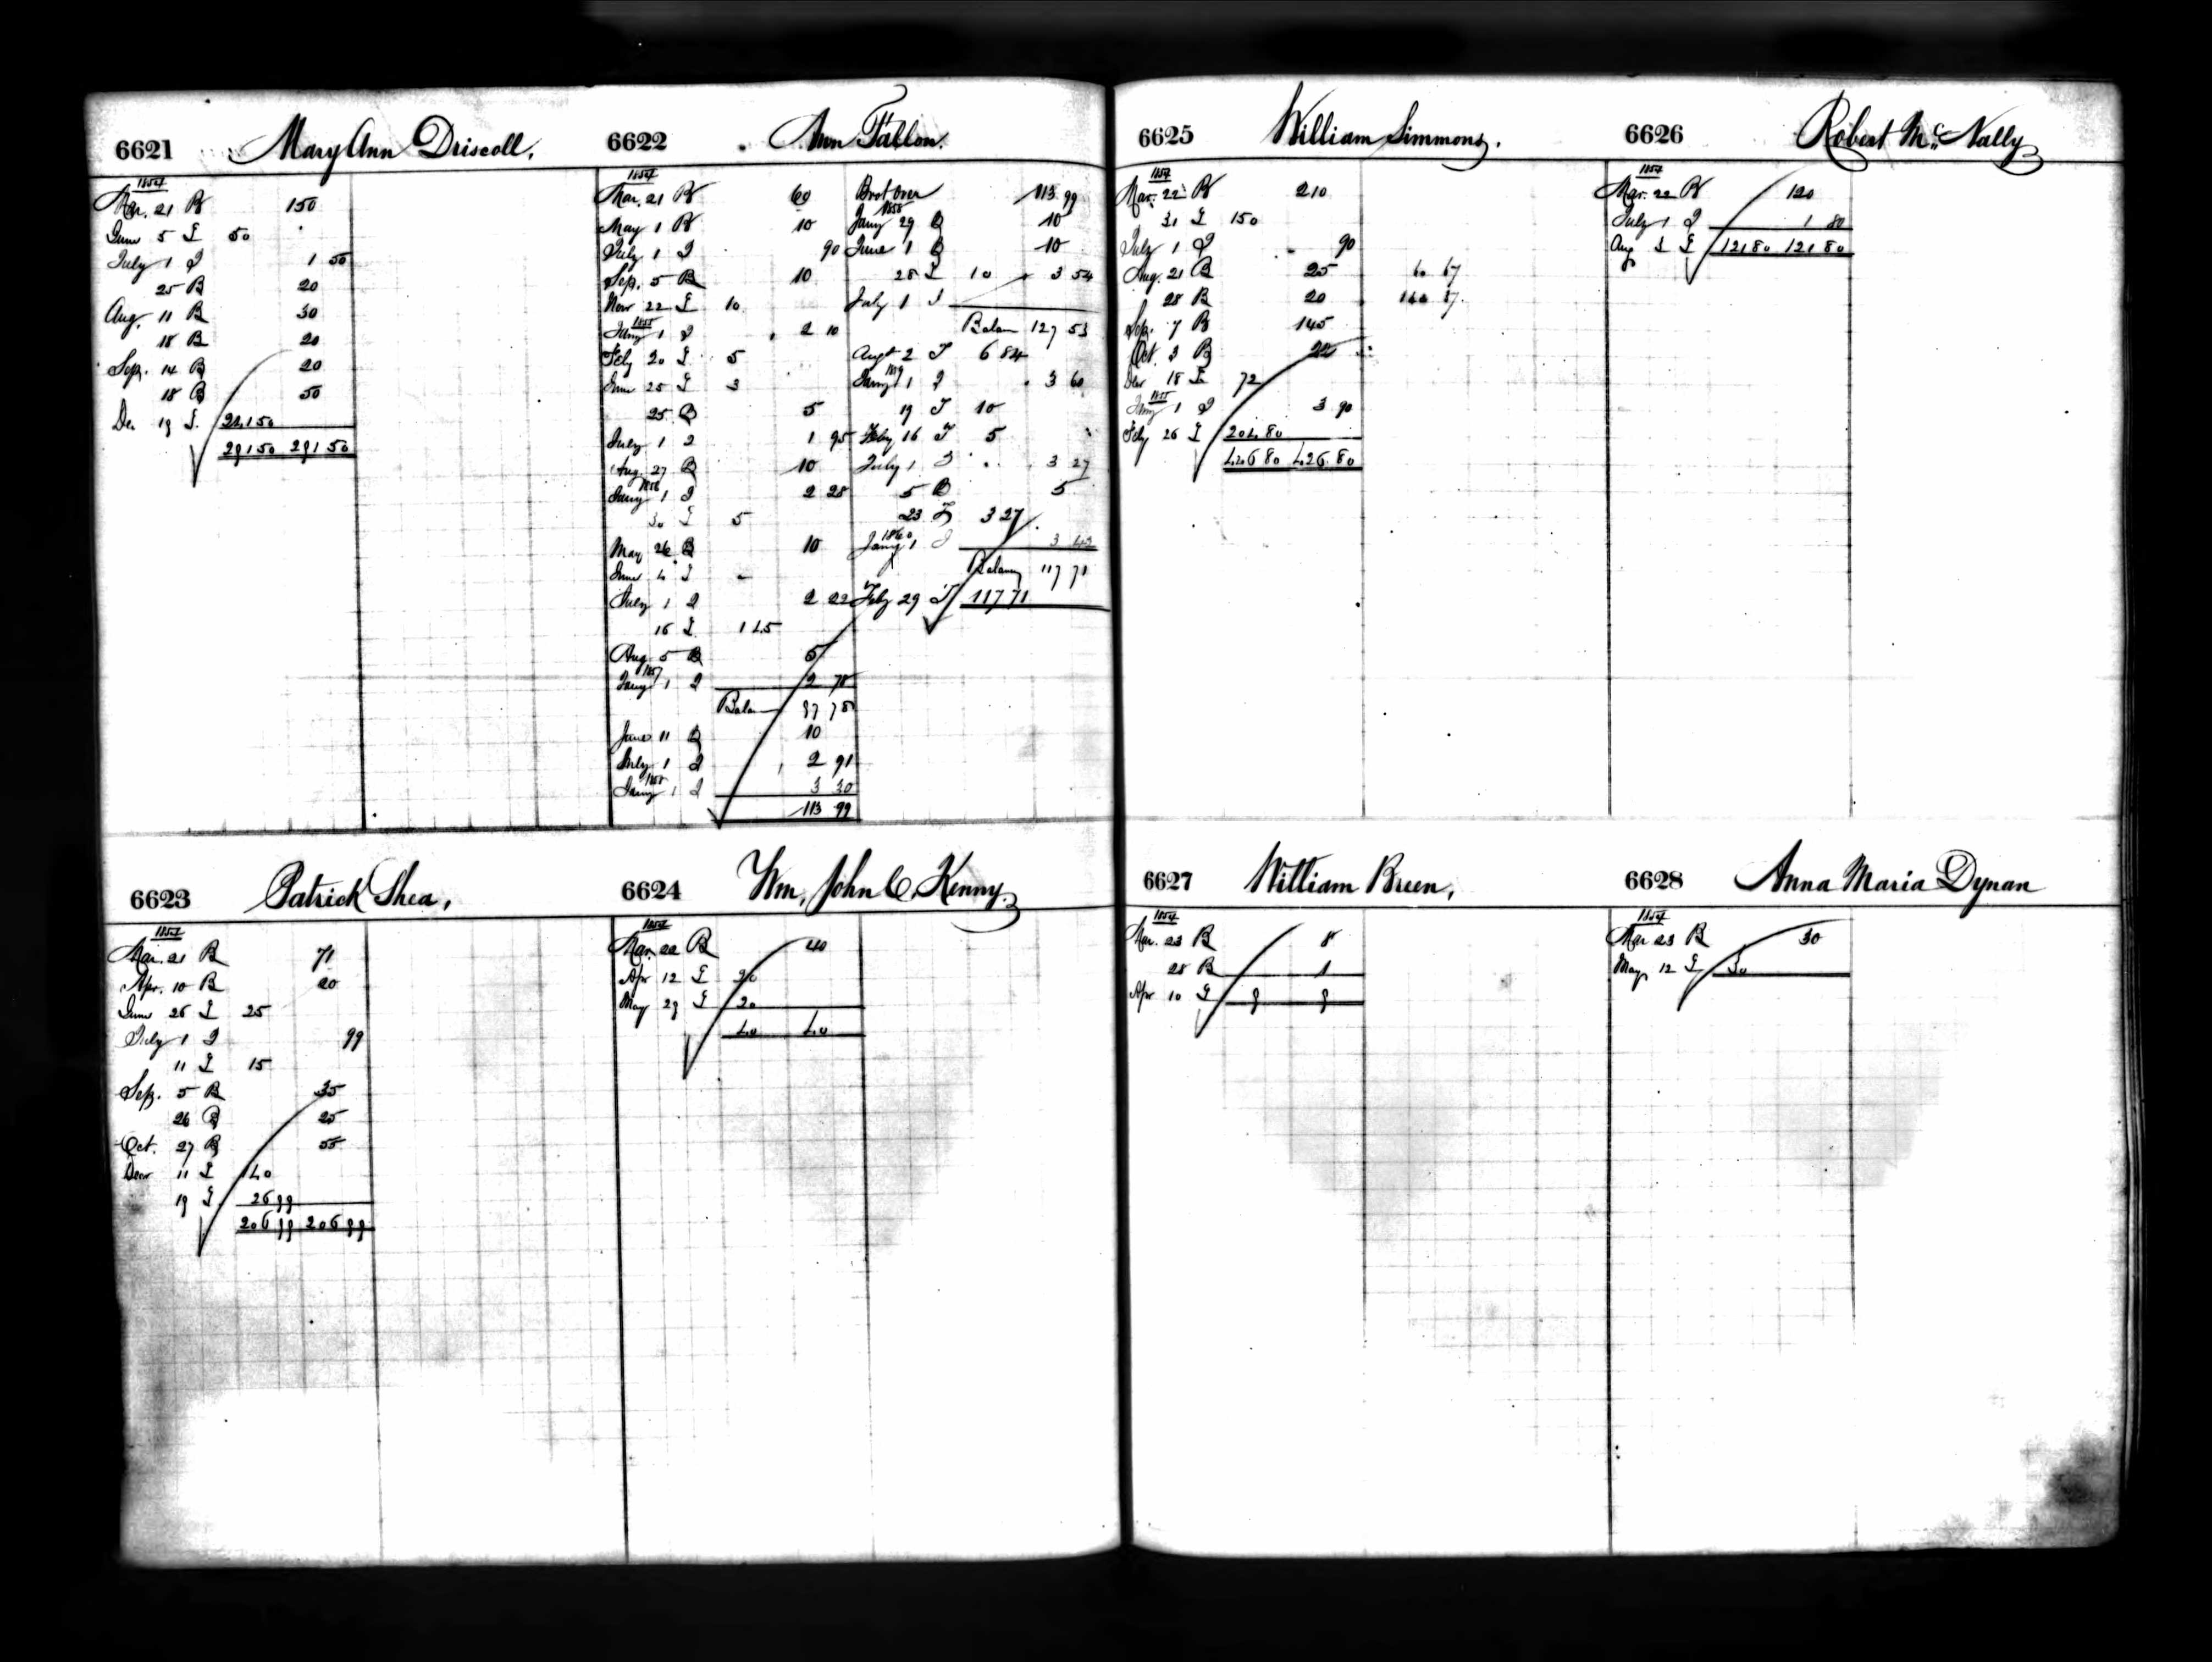 6621 Mary Ann Driscoll.
1854
Mar. 21 B 150
June 5 T 50
July 1 I 1 50
25 B 20
Aug. 11 B 30
18 B 20
Sep. 14 B 20
18 B 50
De. 19 T. 241 50
291 50 291 50
6622 Ann Fallon.
1854
Mar. 21 B 60
May 1 B 10
July 1 I 90
Sep. 5 B 10
Nov 22 T 10
1855
Jany 1 I 2 10
Feby 20 T 5
June 25 T 3
25 B 5
July 1 I 1 95
Aug. 27 B 10
1856
Jany 1 I 2 28
30 T 5
May 26 B 10
June 4 T
July 1 I 2 22
16 T. 1 45
Aug. 5 B 5
1857
Jany 1 I 2 78
Balan 97 78
June 11 B 10
July 1 I 2 91
1858
Jany 1 I 3 30
113 99
Brot Over 113 99
1858
Jany 29 B 10
June 1 B 10
28 T 10 3 54
July 1 I
Balan 127 53
Augt 2 T 6 84
1859
Jany 1 I 3 60
19 T 10
Feby 16 T 5
July 1 I 3 27
5 B 5
23 T 3 27
1860
Jany 1 I 3 42
Balance 117 71
Feby 29 T 117 71
6623 Patrick Shea,
1854
Mar. 21 B 71
Apr. 10 B 20
June 26 T 25
July 1 I 99
11 T 15
Sep. 5 B 35
26 B 25
Oct. 27 B 55
Decr 11 T 140
19 T 26 99
206 99 206 99
6624 Wm. John C. Kenny.
1854
Mar. 22 B 40
Apr 12 T 20
May 29 T 20
40 40
6625 William Simmons.
1854
Mar. 22 B 210
31 T 150
July 1 I 90
Aug. 21 B 25 60 67
28 B 20 140 87
Sep. 7 B 145
Oct. 2 B 22
Decr 18 T 72
1855
Jany 1 I 3 90
Feby 26 T 204 80
426 80 426 80
6626 Robert McNally
1854
Mar. 22 B 120
July 1 I 1 80
Aug 3 T 121 80 121 80
6627 William Breen,
1854
Mar. 23 B 8
28 B 1
Apr 10 T 9 9
6628 Anna Maria Dynan
1854
Mar 23 B 30
May 12 T 30